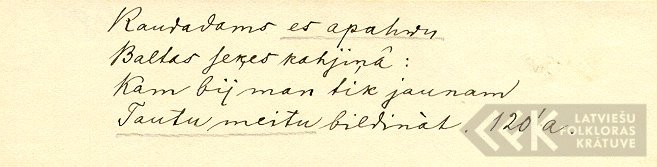 Raudadams es apahwu
Baltas ſeķes kahjiņâ:
Kam bij man tik jaunam
Tautu meitu bildināt. 120'a.
LATVIEŠU
FOLKLORAS
KRĀTUVE